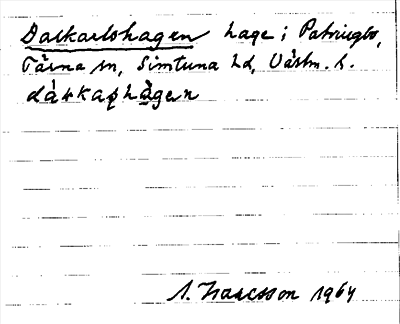 Daskarlshagen hage i Patringbo,
Tärna sn, Simtuna hd, Västm. l.
dàskaṣhàgen
S. Isaacsson 1964